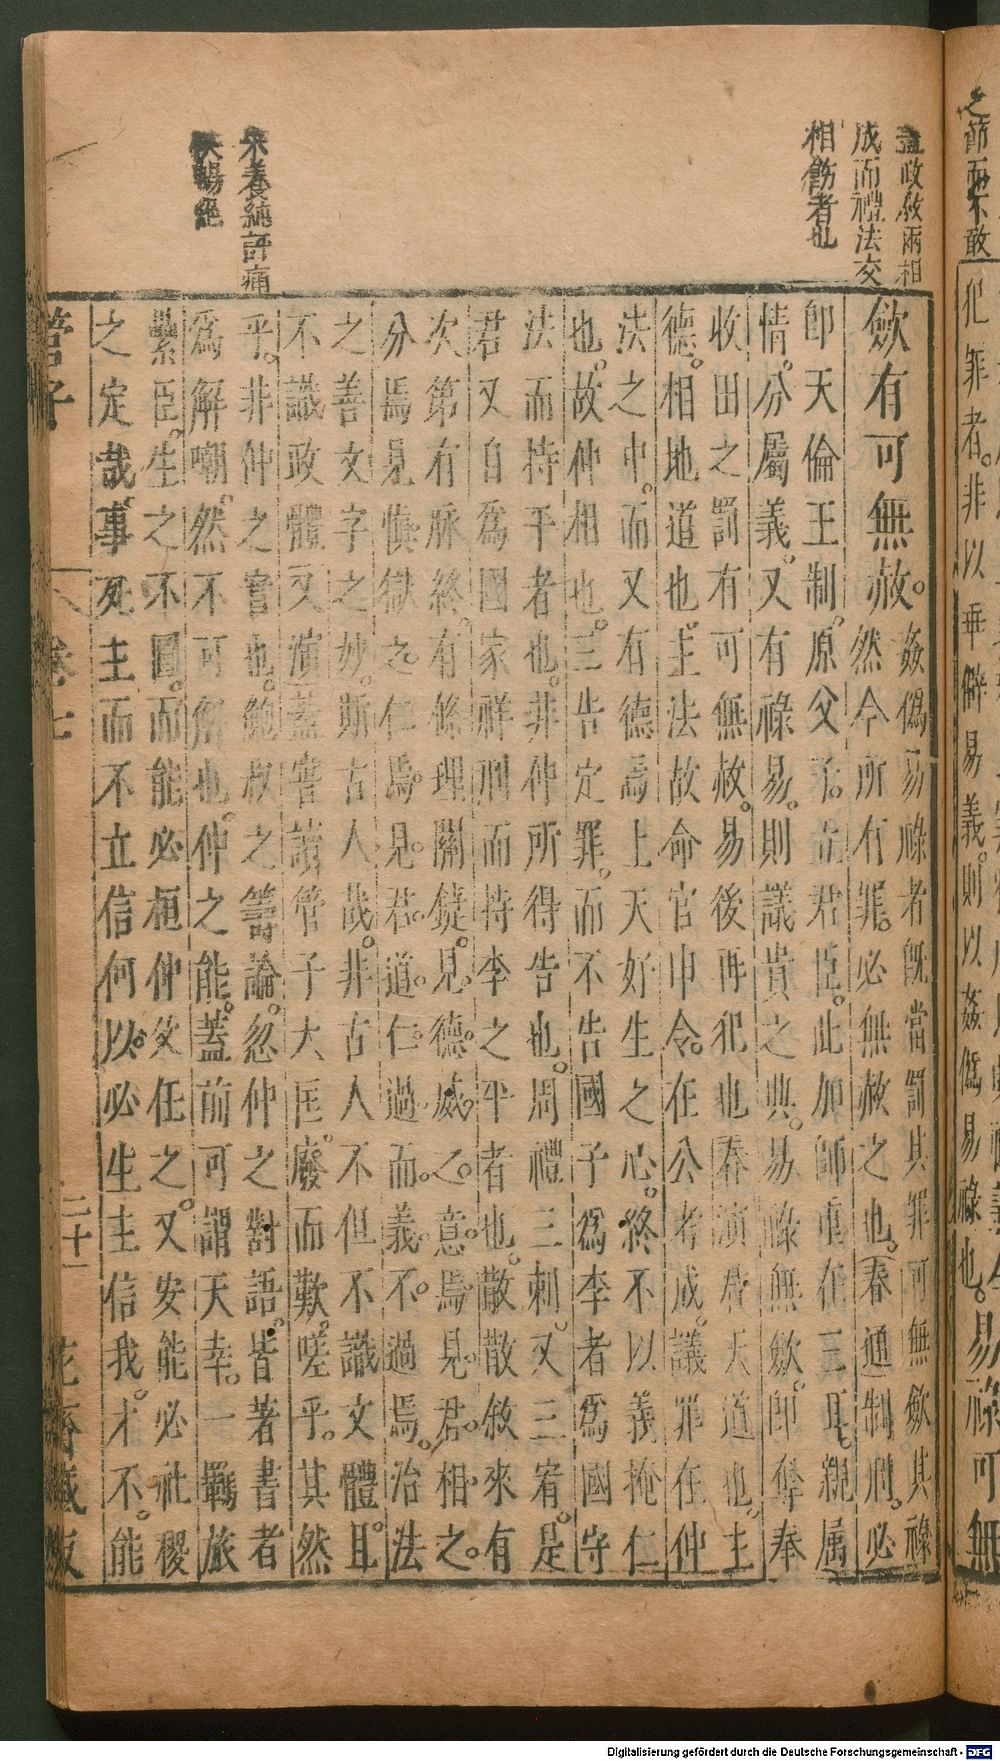 之節而不敢
犯罪者。非以
乖僻易義。則以姦僞易祿也。易祿可無
盡政敘兩相
成而禮法交
相飭者也
斂有可無赦。
姦僞易祿者旣當罰其罪可無斂其祿
然今所有罪。必無赦之也。春通制刑。必
卽天倫王制。原父子。立君臣。此加師重在三耳。親属
情。分屬義。又有祿易。則議貴之典。易祿無斂。卽奪奉
收田之罰有可無赦。易後再犯也春演君天道也。主
德。相地道也。主法故命官申令。在公者成。議罪在仲
法之中。而又有德焉上天好生之心。終不以義掩仁
也。故仲相也。三告定罪。而不告國子爲李者爲國守
法而持平者也。非仲所得告也。周禮三刺。又三宥。是
君又自爲國家祥刑而持李之平者也。散散敘來有
次第有脈終。有條理關鍵。見。德。威。之。意。焉。見。君。相。之。
分焉見愼獄之。仁焉。見。君。道。仁。過。而。義。不。過焉。治法
之善文字之妙。斯古人哉。非古人不但不識文體耳。
不識政體又演蓋嘗讀管子大匡。廢而歎嗟乎。其然
朱養純評痛
快暢絕
乎。非仲之嘗也。鮑叔之籌論。忽仲之對語。皆著書者
爲解嘲。然不可解也。仲之能。蓋前可謂天幸。一羈旅
纍臣。生之不圖。而能必桓仲父任之。又安能必社稷
之定哉。事死主而不立信何以必生主信我。才不。能
管子 卷七 二十一 花齋藏板
Digitalisierung gefördert durch die Deutsche Forschungsgemeinschaft - DFG